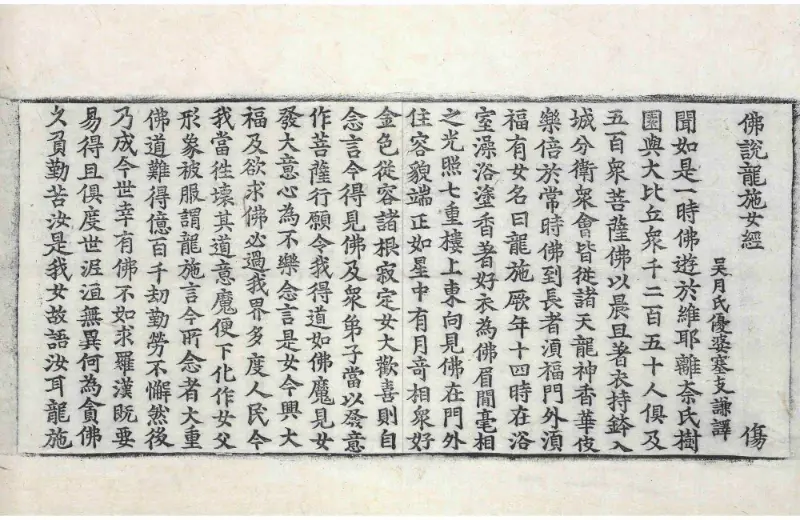 佛說龍施女經 傷
吳月氏優婆塞支謙譯
聞如是一時佛遊於維耶離奈氏樹
園與大比丘衆千二百五十人俱及
五百衆菩薩佛以晨旦著衣持鉢入
城分衛衆會皆從諸天龍神香華伎
樂倍於常時佛到長者湏福門外湏
福有女名曰龍施厥年十四時在浴
室澡浴塗香著好衣為佛眉間毫相
之光照七重樓上東向見佛在門外
住容貌端正如星中有月奇相衆好
金色從容諸根寂定女大歡喜則自
念言今得見佛及衆弟子當以發意
作菩薩行願令我得道如佛魔見女
發大意心為不樂念言是女今興大
福及欲求佛必過我界多度人民今
我當徃壞其道意魔便下化作女父
形象被服謂龍施言今所念者大重
佛道難得億百千劫勤勞不懈然後
乃成今世幸有佛不如求羅漢旣要
易得且俱度世泥洹無異何為貪佛
久負勤苦汝是我女故語汝耳龍施